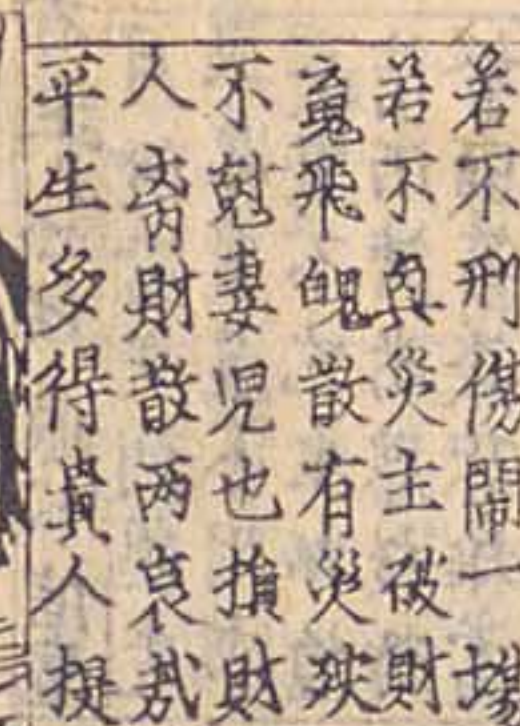 若不刑傷鬧一塲
若不災主破財
䰟飛魄散有災殃
不尅妻児也損財
人財散两哀哉
平生多得貴人提